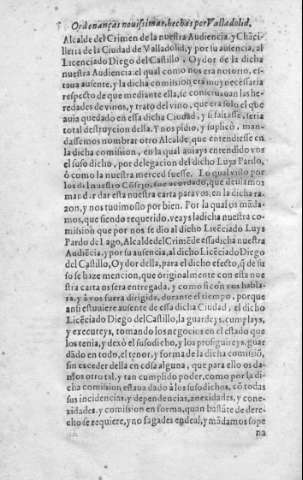 Ordenanças nouissimas, hechas por Valladolid,
Alcalde del Crimen de la nuestra Audiencia, y Chãci-
lleria de la Ciudad de Valladolid, y por su ausencia, al
Licenciado Diego del Castillo, Oydor de la dicha
nuestra Audiencia, el qual como nos era notorio, es-
taua ausente, y la dicha comision era muy necessaria
respeto de que mediante ella, se conseruauan las he-
redades de vinos, y trato del vino, que era solo el que
auia quedado en essa dicha Ciudad, y si faltasse, seria
total destruycion della. Y nos pidio, y suplicò, man-
dassemos nombrar otro Alcalde, que entendiesse en
la dicha comission, en la qual auiays entendido vos
el suso dicho, por delegacion del dicho Luys Pardo,
ò como la nuestra merced fuesse. Lo qual visto por
los del nuestro Cõsejo, fue acordado, que deuiamos
mandar dar esta nuestra carta para vos, en la dicha ra-
zon, y nos tuuimoslo por bien. Por la qual os mãda-
mos, que siendo requerido, veays la dicha nuestra co-
mission que por nos se dio al dicho Licẽciado Luys
Pardo de Lago, Alcalde del Crimẽ de essa dicha nuestra
Audiẽcia, y por su ausencia, al dicho Licẽciado Diego
del Castillo, Oydor della, para el dicho efeto, q̃ de su
so se haze mencion, que originalmente con esta nue
stra carta os sera entregada, y como si con vos habla-
ra, y à vos fuera dirigida, durante el tiempo, porque
ansi estuuiere ausente de essa dicha Ciudad, el dicho
Licẽciado Diego del Castillo, la guardeys, cumplays,
y executeys, tomando los negocios en el estado que
los tenia, y dexò el suso dicho, y los prosiguireys, guar
dãdo en todo, el tenor, y forma de la dicha comissiõ,
sin exceder della en cosa alguna, que para ello os da-
mos otro tal, y tan cumplido poder, como por la di-
cha comission estaua dado à los suso dichos, cõ todas
sus incidencias, y dependencias, anexidades, y cone-
xidades, y comission en forma, quan bastãte de dere-
cho se requiere, y no fagades ende al, y mãdamos so pe
na